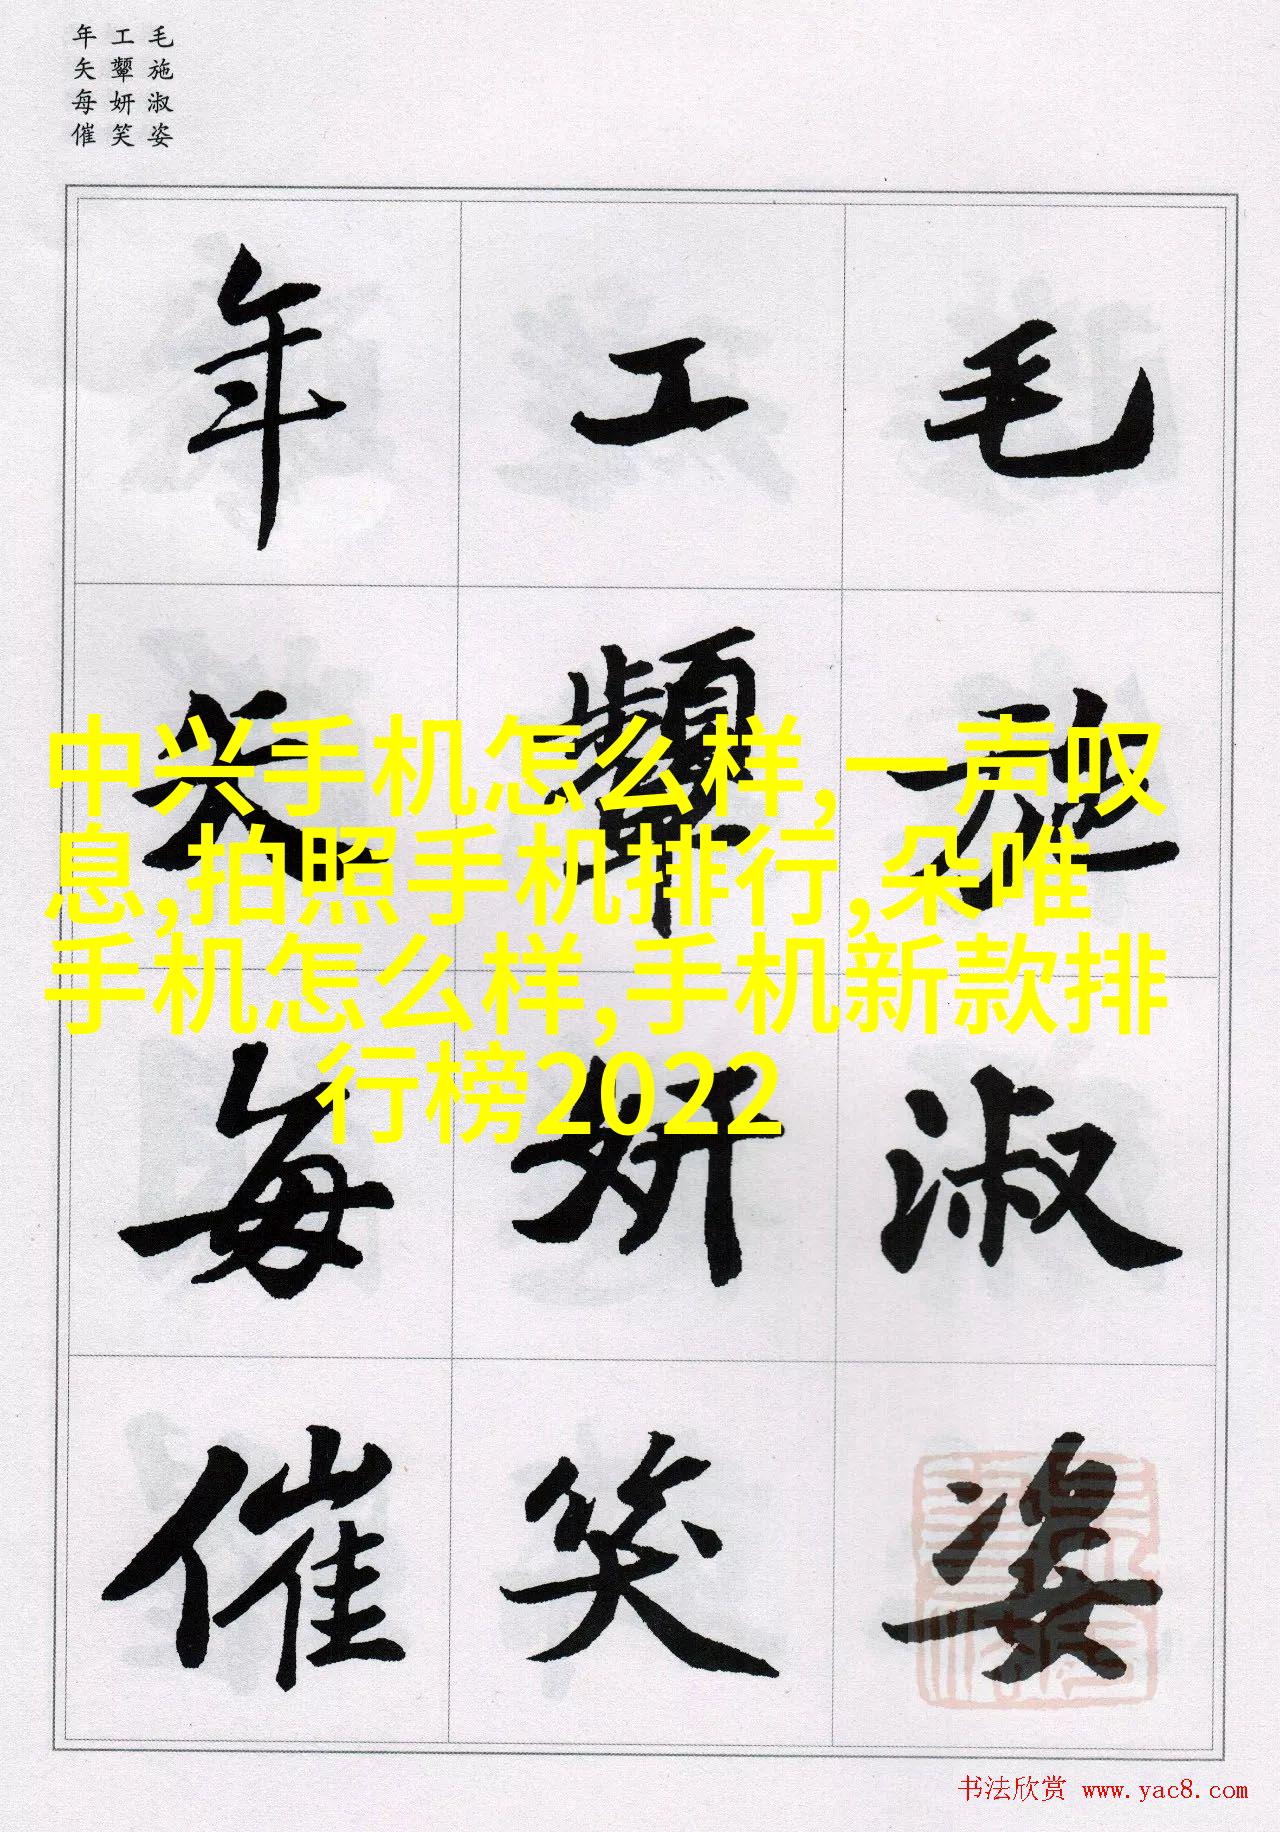 毛施淑姿
工颦妍笑
年矢每催
毛施淑姿
工颦妍笑
年矢每催
中兴手机怎么样,一声叹
息,拍照手机排行,朵唯
手机怎么样,手机新款排
行榜2022
书法欣赏 www.yac8.com